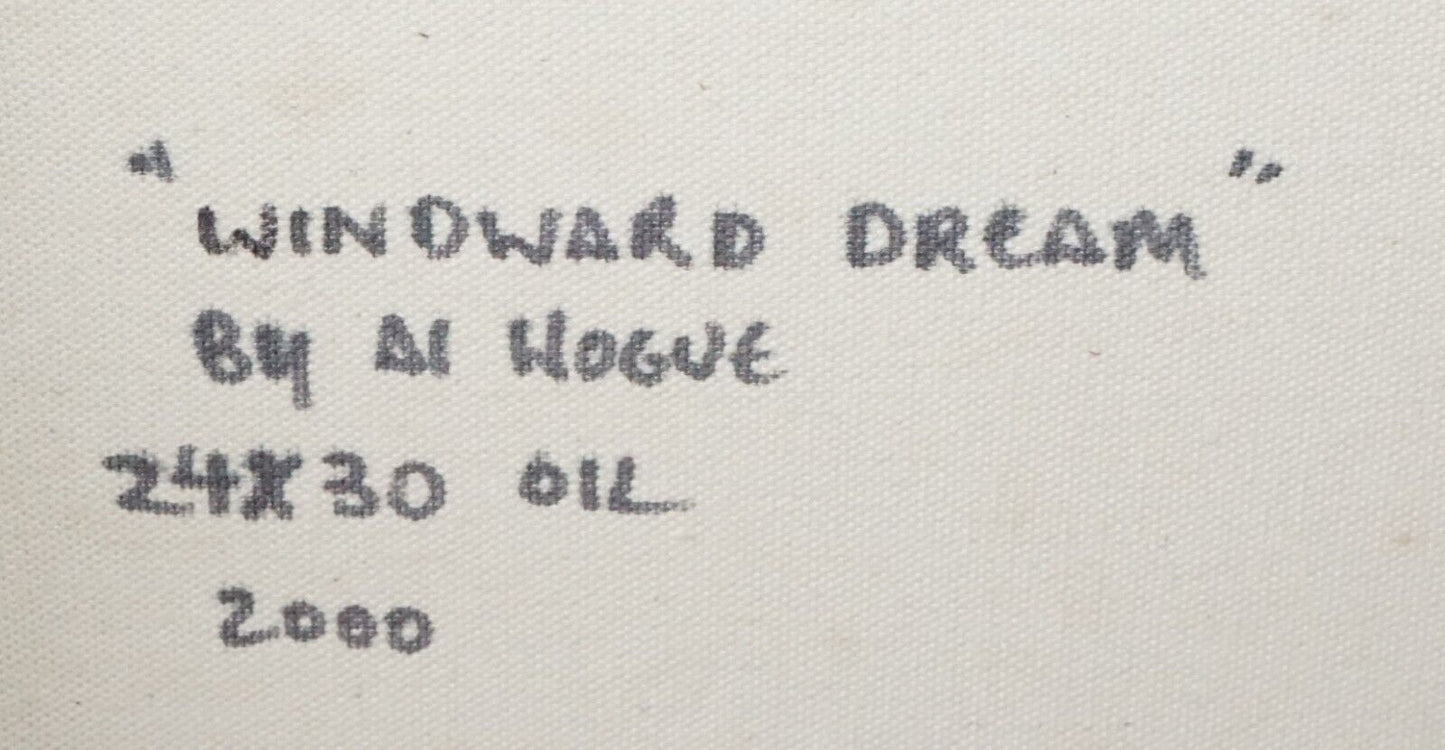 "WINDWARD DREAM"
By Al HOGUE
24X30 OIL
2000